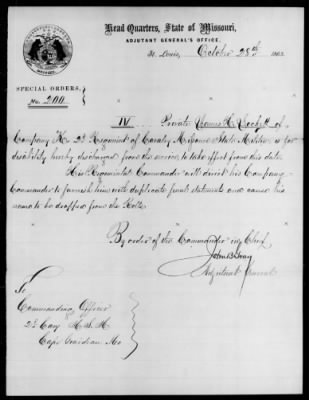 Head Quarters, State of Missouri,
ADJUTANT GENERAL'S OFFICE.
St. Louis, October 28th 186
SPECIAL ORDERS,
No. 200
IV Private H. Lockett of
Company K. 2d Regiment of Cavalry Missouri State Militia is for
disability hereby discharged from the service to take effect from this date
His Regimental Commander will direct his Company
Commander to furnish him with duplicate final statements and cause his
name to be dropped from the Rolls
By order of the Commander in Chief
John B. Gray
Adjutant General
To
Commanding Officer
2d Cav M. S. M.
Cape Girardeau Mo